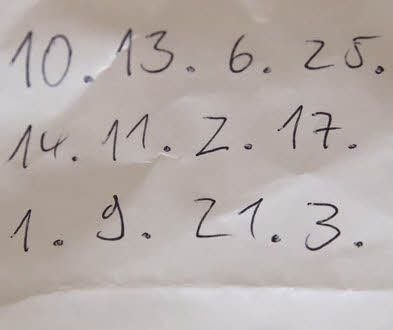 10. 13. 6. 25.
14. 11. 2. 17.
1. 9. 21. 3.